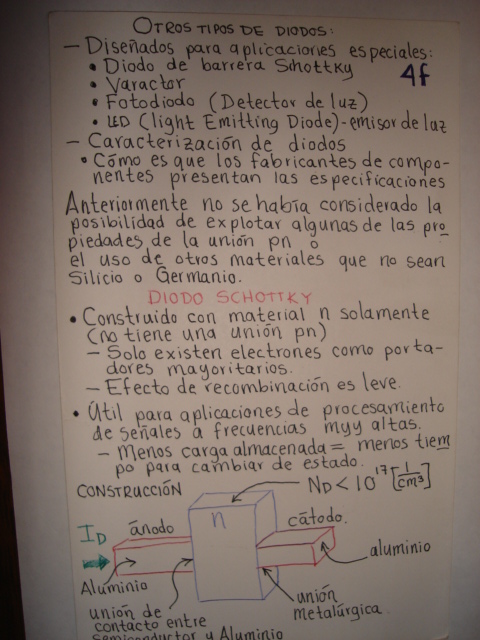 OTROS TIPOS DE DIODOS:
– Diseñados para aplicaciones especiales:
• Diodo de barrera Schottky
4f
• Varactor
• Fotodiodo (Detector de luz)
• LED (light Emitting Diode)-emisor de luz
– Caracterización de diodos
• Cómo es que los fabricantes de compo-
nentes presentan las especificaciones
Anteriormente no se había considerado la
posibilidad de explotar algunas de las pro
piedades de la unión pn o
el uso de otros materiales que no sean
Silicio o Germanio.
DIODO SCHOTTKY
• Construido con material n solamente
(no tiene una unión pn)
– Solo existen electrones como porta-
dores mayoritarios.
– Efecto de recombinación es leve.
• Útil para aplicaciones de procesamiento
de señales a frecuencias muy altas.
– Menos carga almacenada = menos tiem
po para cambiar de estado.
CONSTRUCCIÓN
ND < 10^17 [1/cm³]
n
ID
ánodo
cátodo.
aluminio
Aluminio
unión
metalúrgica.
unión de
contacto entre
semiconductor y Aluminio